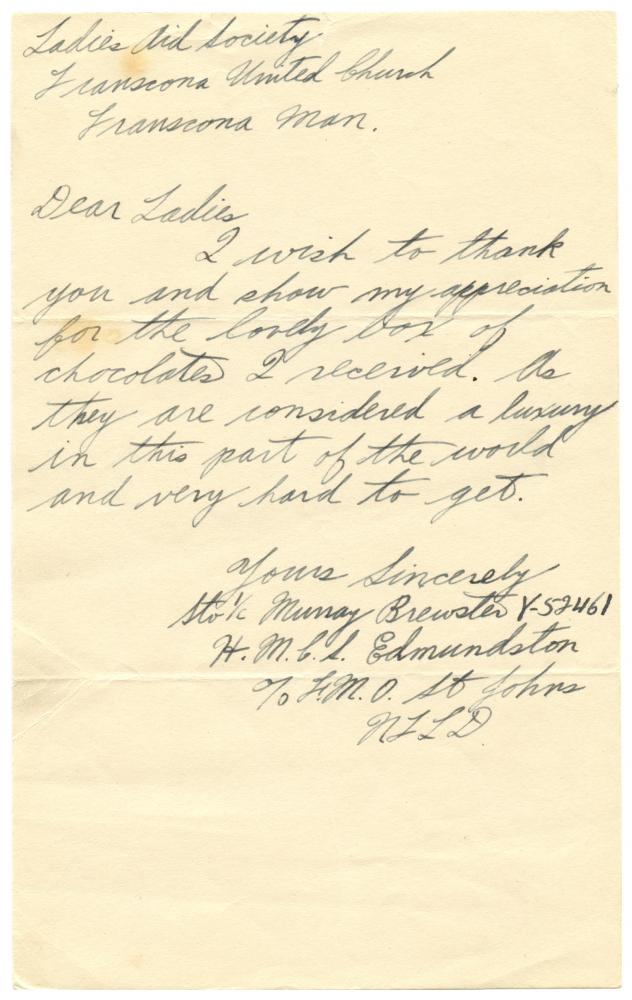 Ladies Aid Society
Transcona United Church
Transcona Man.
Dear Ladies
I wish to thank
you and show my appreciation
for the lovely box of
chocolates I received. As
they are considered a luxury
in this part of the world
and very hard to get.
Yours Sincerely
Sto 1/c Murray Brewster V-52461
H.M.C.S. Edmundston
c/o F.M.O. St Johns
NFLD